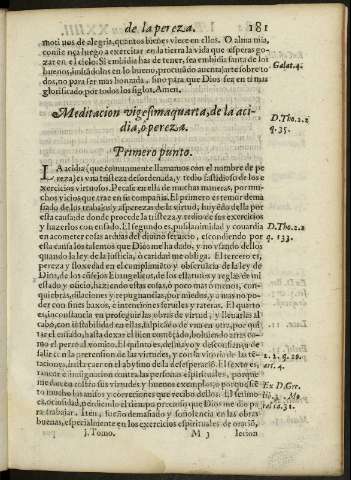 de la pereza. 181
motiuos de alegria, quantos bienes viere en ellos. O alma mia,
comiença luego a exercitar en la tierra la vida que esperas go-
zar en el cielo: Si embidia has de tener, sea embidia santa de los
buenos, imitãdolos en lo bueno, procurãdo auentajarte sobre to
dos, no para ser mas honrada, sino para que Dios sea en ti mas
glorificado por todos los siglos. Amen.
Galat. 4.
Meditacion vigesimaquarta, de la aci-
dia, o pereza.
D. Tho. 2. 2
q. 35.
Primero punto.
LA acidia (que comunmente llamamos con el nombre de pe
reza) es vna tristeza desordenada, y todo fastidioso de los e
xercicios virtuosos. Pecase en ella de muchas maneras, por mu-
chos vicios que trae en su compañia. El primero es temor dema
siado de los trabajos y asperezas de la virtud, huyẽdo della por
esta causa: de donde procede la tristeza, y tedio de sus exercicios
y hazerlos con enfado. El segundo es, pusilanimidad y couardia
en acometer cosas arduas del diuino seruicio, escondiendo por
esta causa los talentos que Dios me ha dado, y no vsando dellos
quando la ley de la justicia, o caridad me obliga. El tercero es,
pereza y floxedad en el cumplimiẽto y obseruancia de la ley de
Dios, de los cõsejos Euangelicos, de los estatutos y reglas de mi
estado y oficio, haziendo estas cosas, o poco mas o menos, con
quiebras, dilaciones y repugnancias, por miedos, y a mas no po-
der con fines baxos, e intenciones seruiles y rateras. El quarto
es, inconstancia en proseguir las obras de virtud, y lleuarlas al
cabo, con instabilidad en ellas, saltãdo de vna en otra, por qui-
tar el enfado, hasta dexar el bien començado, boluiendo atras co-
mo el perro al vomito. El quinto es, desmayo y desconfiança de
salir con la pretension de las virtudes, y con la vitoria de las tẽ-
taciones, hasta caer en el abysmo de la desesperacion. El sexto es,
rancor e indignacion contra las personas espirituales, porque
me dan en rostro sus virtudes y buenos exemplos, o porque siẽ-
to mucho sus auisos y correciones que recibo dellos. El septimo
es, ociosidad, perdiendo el tiempo precioso que Dios me dio pa
ra trabajar. Iten, sueño demasiado y soñolencia en las obras
buenas, especialmente en los exercicios espirituales de oraciõ,
D. Tho. 2. 2
q. 133.
2. 2. q. 20.
art. 4.
Ex D. Gre.
lib. 31. Mo
ral. c. 31.
I. Tomo. M 3 lecion